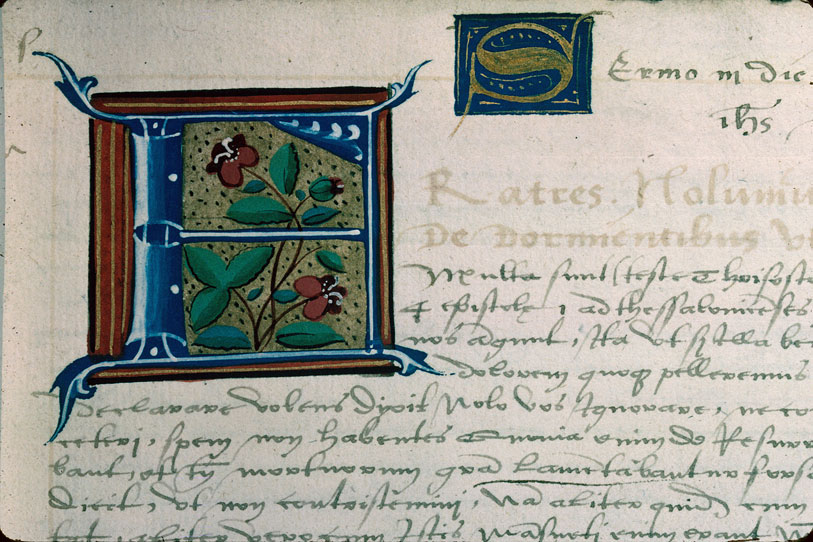 Sermo in die
ihs
Fratres. Nolumu
De Dormientibus vt
Multa sunt (teste Chrisosto
epistolę 1 ad thessalonicenses
nos agunt, Ita vt sz illa be
dolorem quoqz pelleremus
declarare volens dixit Nolo vos Ignorare, ne co
ceteri, spem non habentes Gravia enim de Resurr
bant, et tn̄ mortuorum grā lamētabantur forsa
dicit, vt non contristemini, Nā aliter quidē eum
Istis Mansueti enim erant